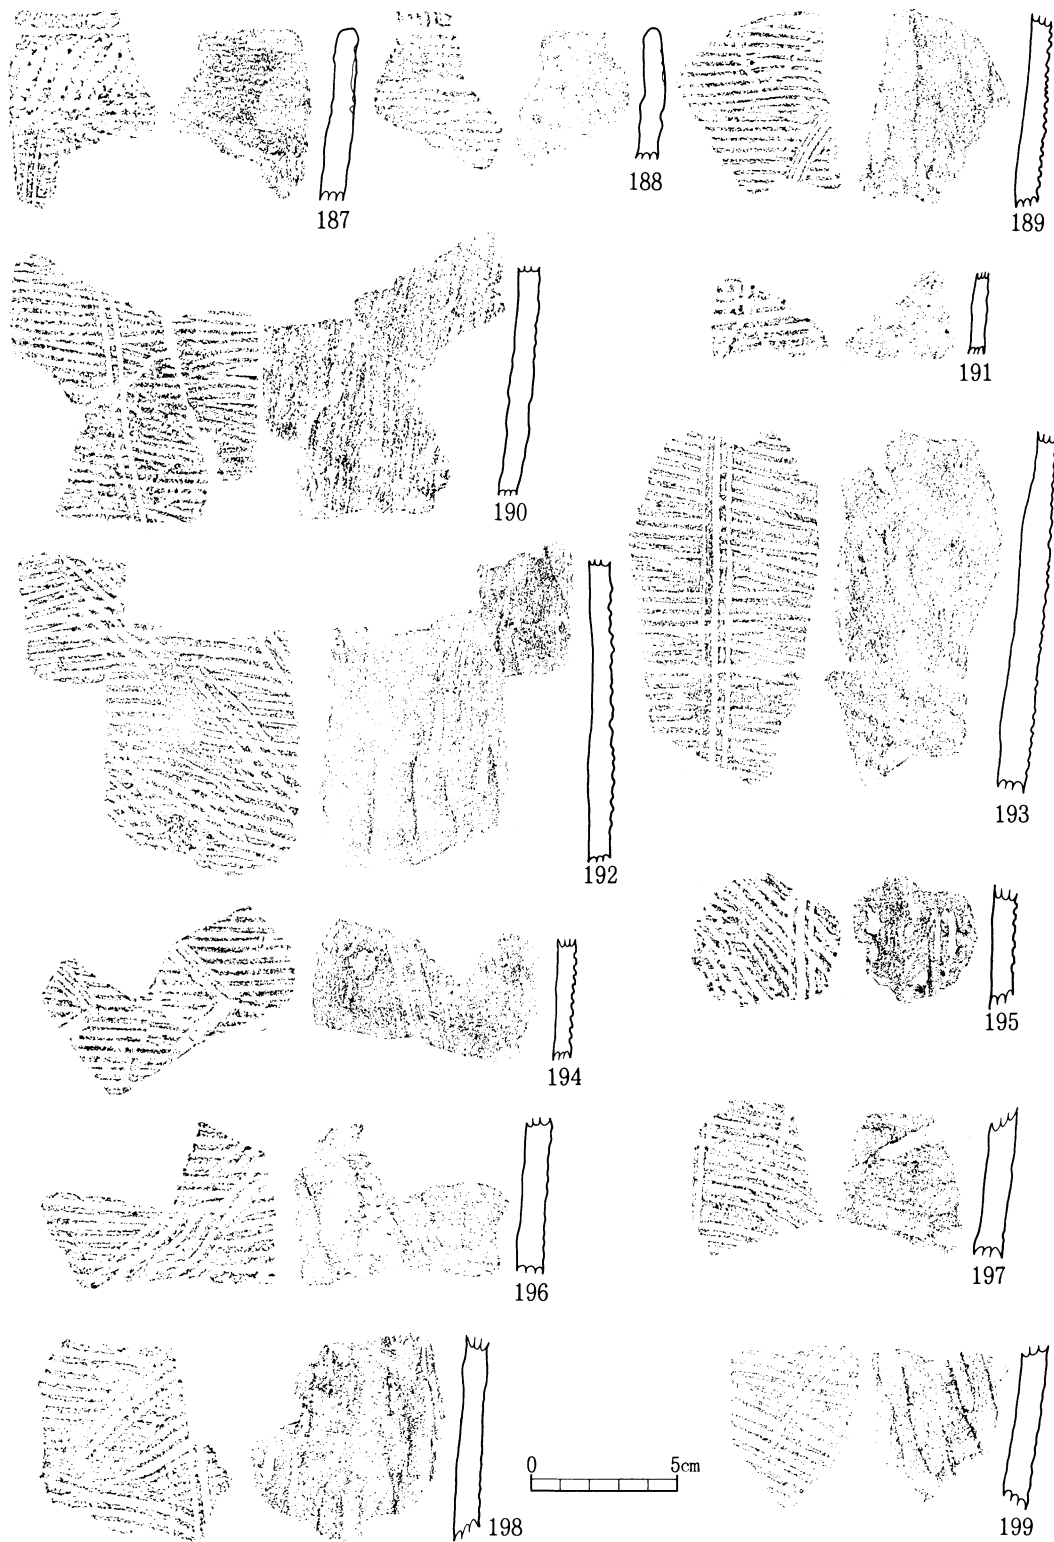 187
188
189
190
191
192
193
194
195
196
197
198
199
0 5cm